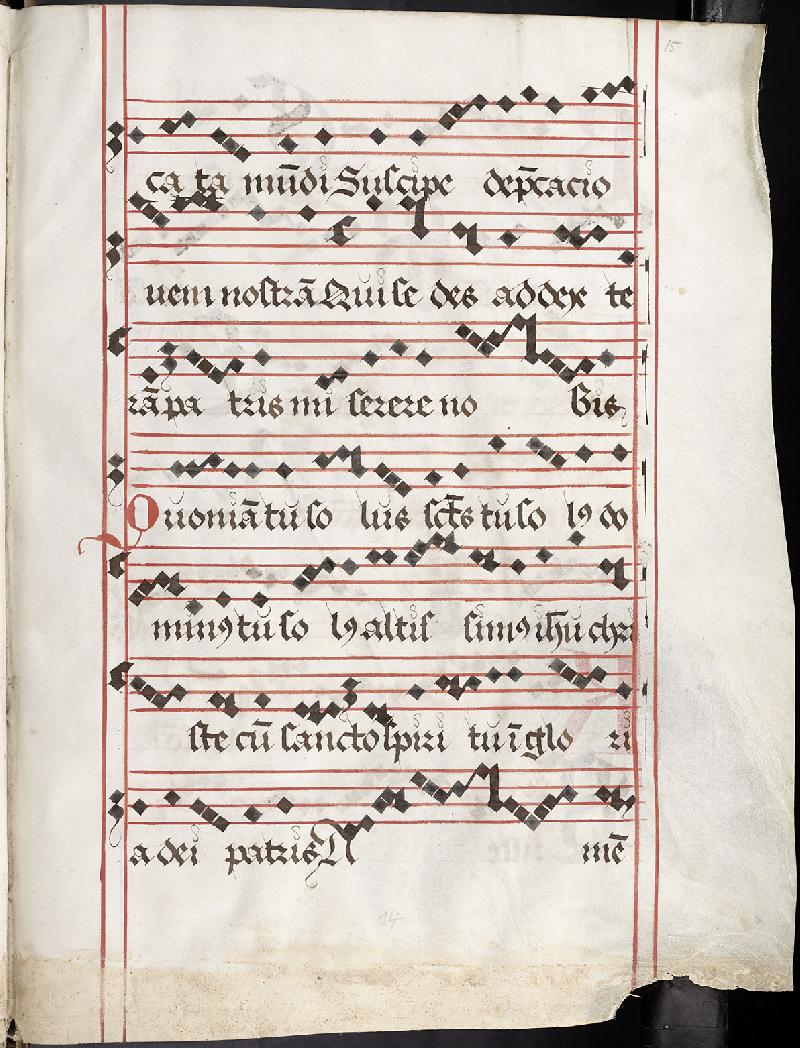 15
ca ta mūdi Suscipe dep̄cacio
nem nostrā Qui se des ad dex te
rā pa tris mi serere no bis
Quoniā tu so lus sc̄ts tu so lꝰ do
minꝰ tu so lꝰ altis simꝰ ih̄u chri
ste cū sancto spiri tu ī glo ri
a dei patris A mē
14